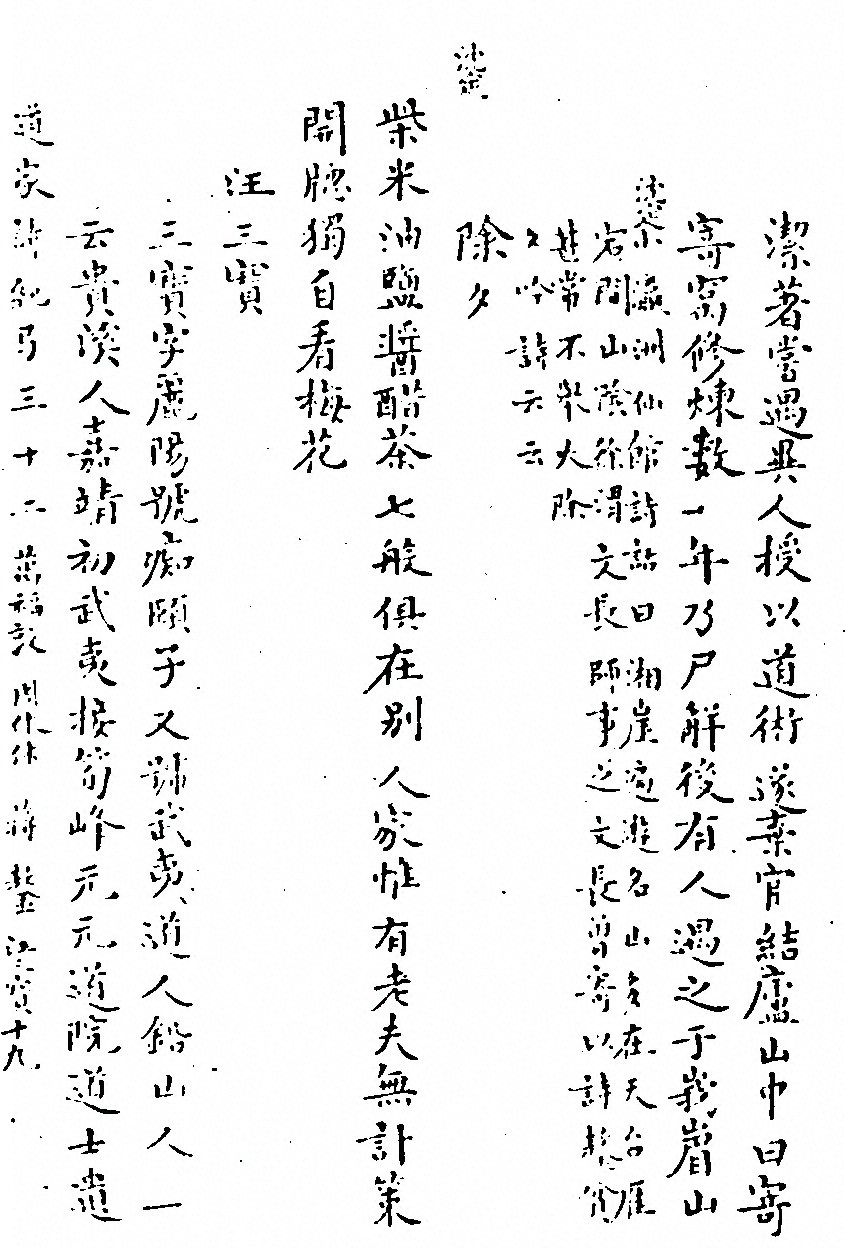 潔著嘗遇異人授以道術遂棄官結廬山中曰寄
寄窩修煉數一年乃尸解後有人遇之于峩眉山
瀛洲仙館詩話曰湘崖遍遊名山多在天台雁
宕間山陰徐渭文長師事之文長曾寄以詩
甚常不舉火除
夕吟詩云云
除夕
柴米油鹽醬醋茶七般俱在别人家惟有老夫無計策
開牕獨自看梅花
汪三寶
三寶字麗陽號痴頤子又號武夷道人鉛山人一
云貴溪人嘉靖初武夷接筍峰元元道院道士遺
道家詩紀弓三十二 萬福敦 周休休 蔣鏊 汪三寶 十九